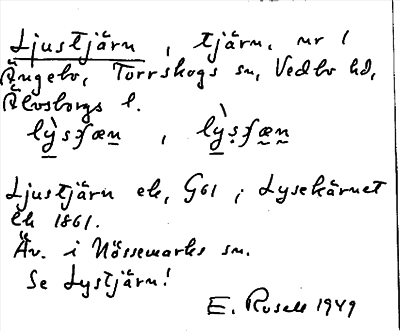 Ljustjärn, tjärn, nr 1
Ängebo, Torrskogs sn, Vedbo hd,
Älvsborgs l.
Ljustjärn ek, G61; Lysekärnet
lk 1861.
Äv. i Nössemarks sn.
Se Lystjärn!
E. Rosell 1949